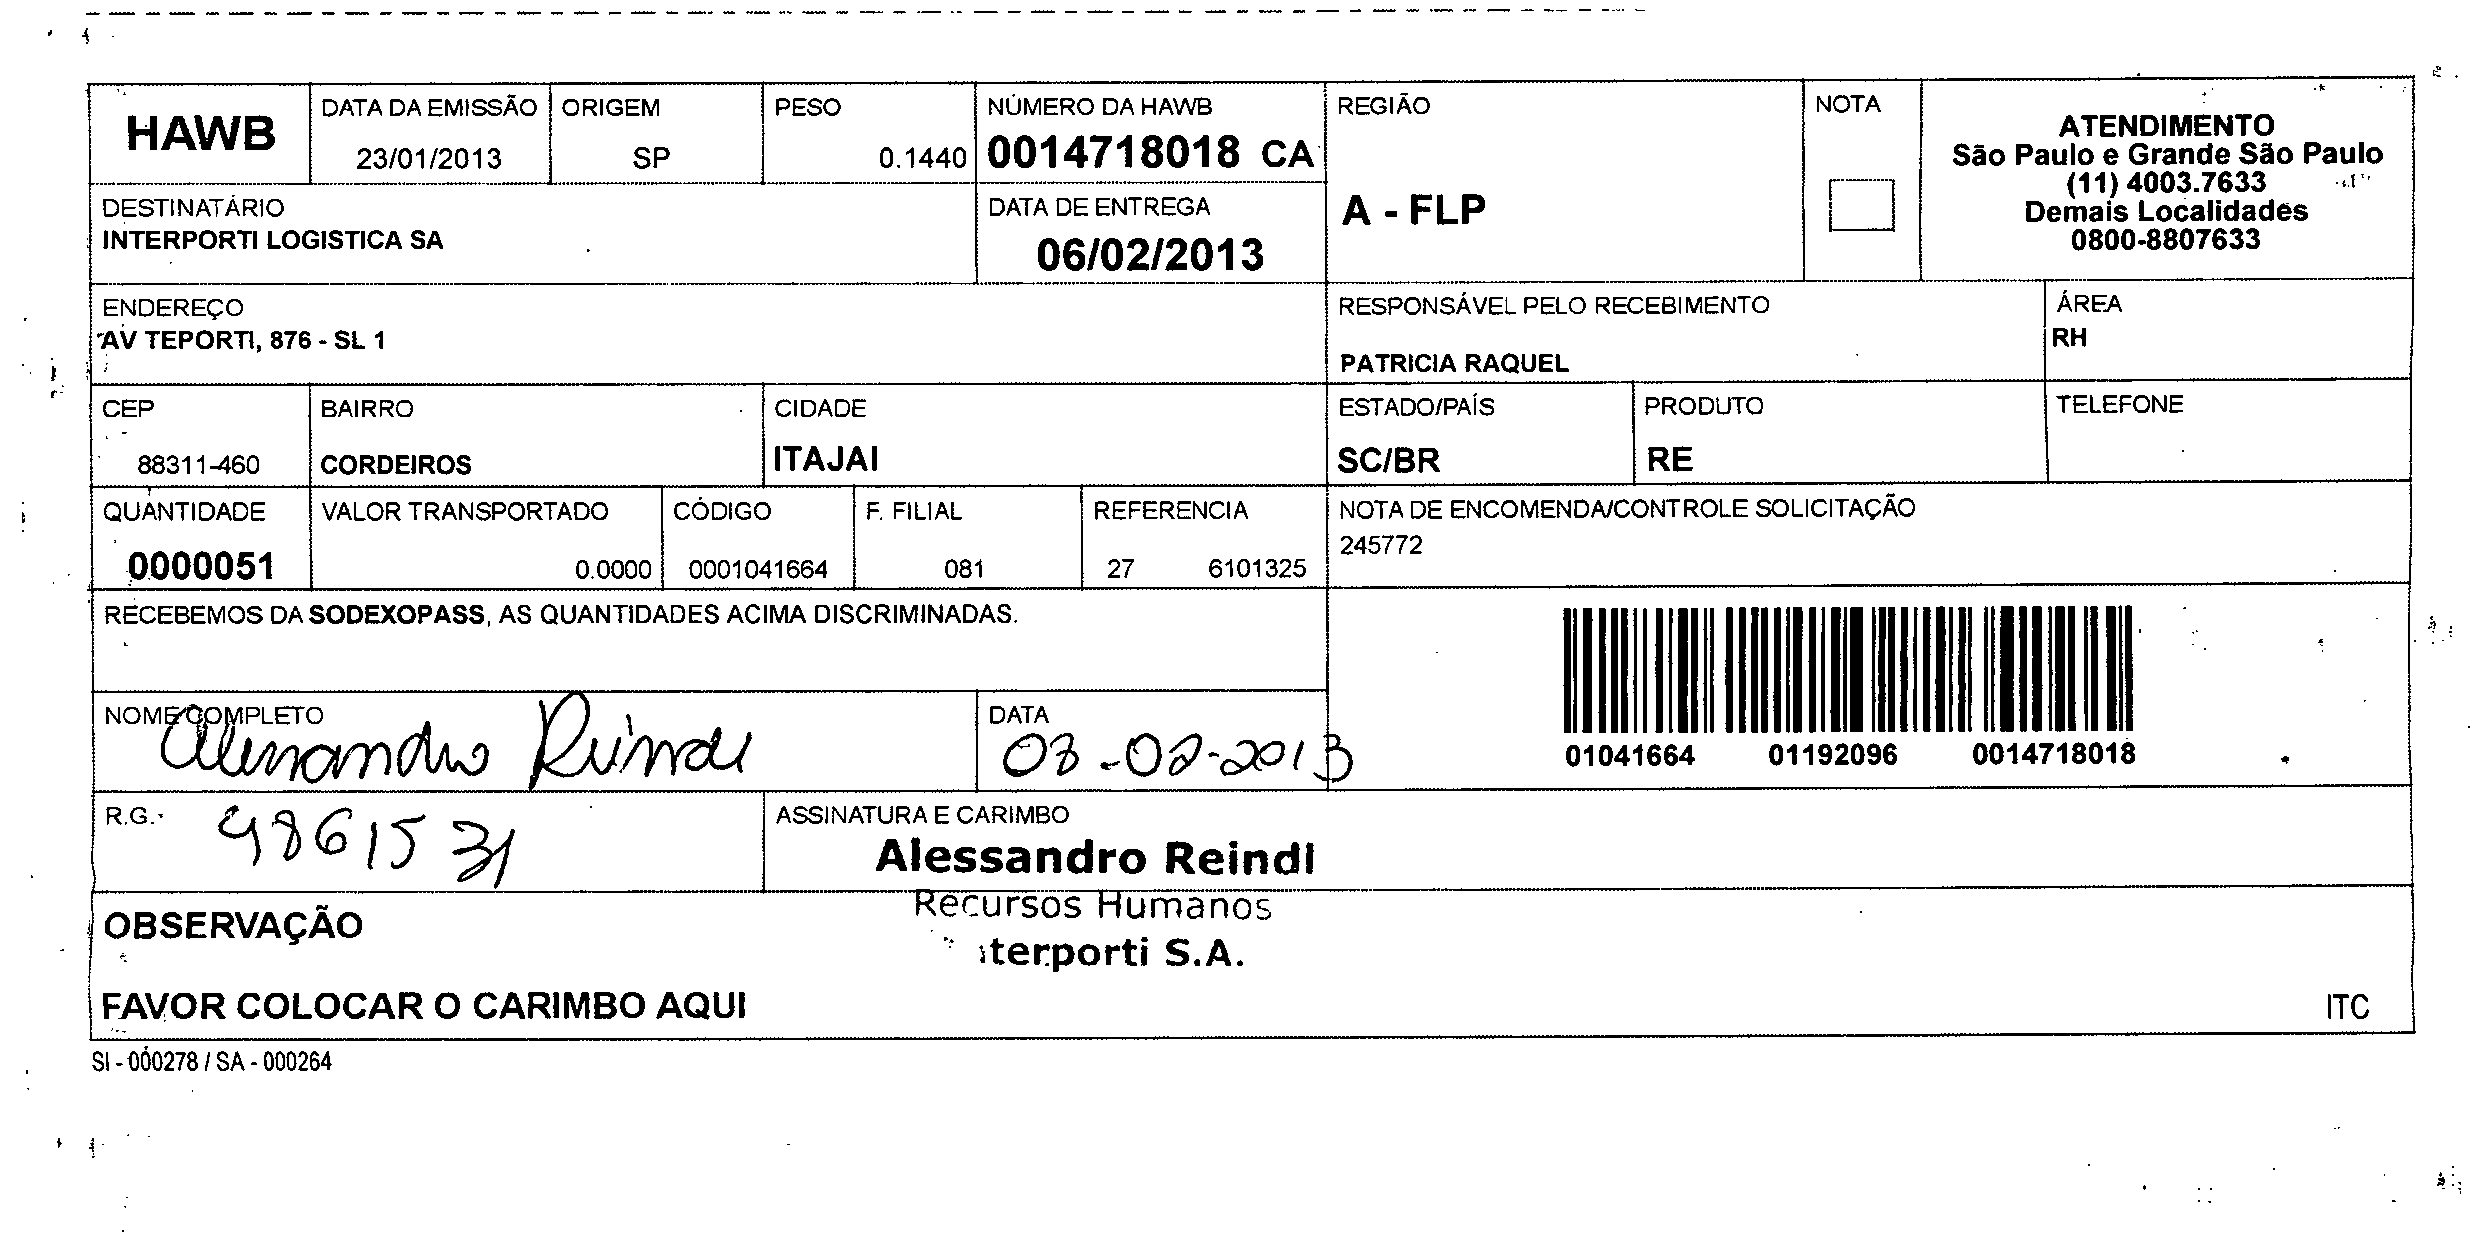 HAWB
DATA DA EMISSÃO
23/01/2013
ORIGEM
SP
PESO
0.1440
NÚMERO DA HAWB
0014718018 CA
REGIÃO
A - FLP
NOTA
ATENDIMENTO
São Paulo e Grande São Paulo
(11) 4003.7633
Demais Localidades
0800-8807633
DESTINATÁRIO
INTERPORTI LOGISTICA SA
DATA DE ENTREGA
06/02/2013
ENDEREÇO
AV TEPORTI, 876 - SL 1
RESPONSÁVEL PELO RECEBIMENTO
PATRICIA RAQUEL
ÁREA
RH
CEP
88311-460
BAIRRO
CORDEIROS
CIDADE
ITAJAI
ESTADO/PAÍS
SC/BR
PRODUTO
RE
TELEFONE
QUANTIDADE
0000051
VALOR TRANSPORTADO
0.0000
CÓDIGO
0001041664
F. FILIAL
081
REFERENCIA
27 6101325
NOTA DE ENCOMENDA/CONTROLE SOLICITAÇÃO
245772
RECEBEMOS DA SODEXOPASS, AS QUANTIDADES ACIMA DISCRIMINADAS.
01041664 01192096 0014718018
NOME COMPLETO
Alessandro Reindl
DATA
-02-2013
R.G.
ASSINATURA E CARIMBO
Alessandro Reindl
Recursos Humanos
terporti S.A.
OBSERVAÇÃO
FAVOR COLOCAR O CARIMBO AQUI
ITC
SI - 000278 / SA - 000264